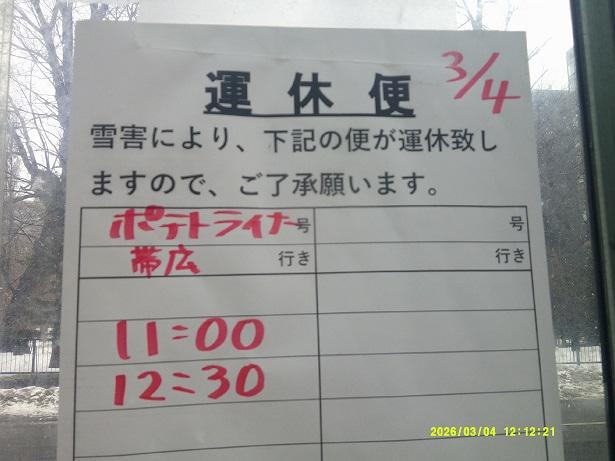 3/4
運休便
雪害により、下記の便が運休致し
ますので、ご了承願います。
ポテトライナー号 号
帯広 行き 行き
11:00
12:30
2026/03/04 12:12:21